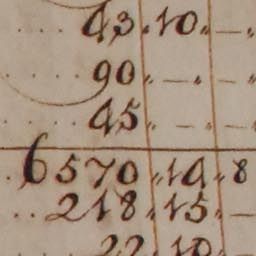 .... 43 . 10 . — .
.... 90 . — . — .
.... 45 . — . — .
. 6570 . 14 . 8
.. 218 . 15 . —
22 . 10 . —